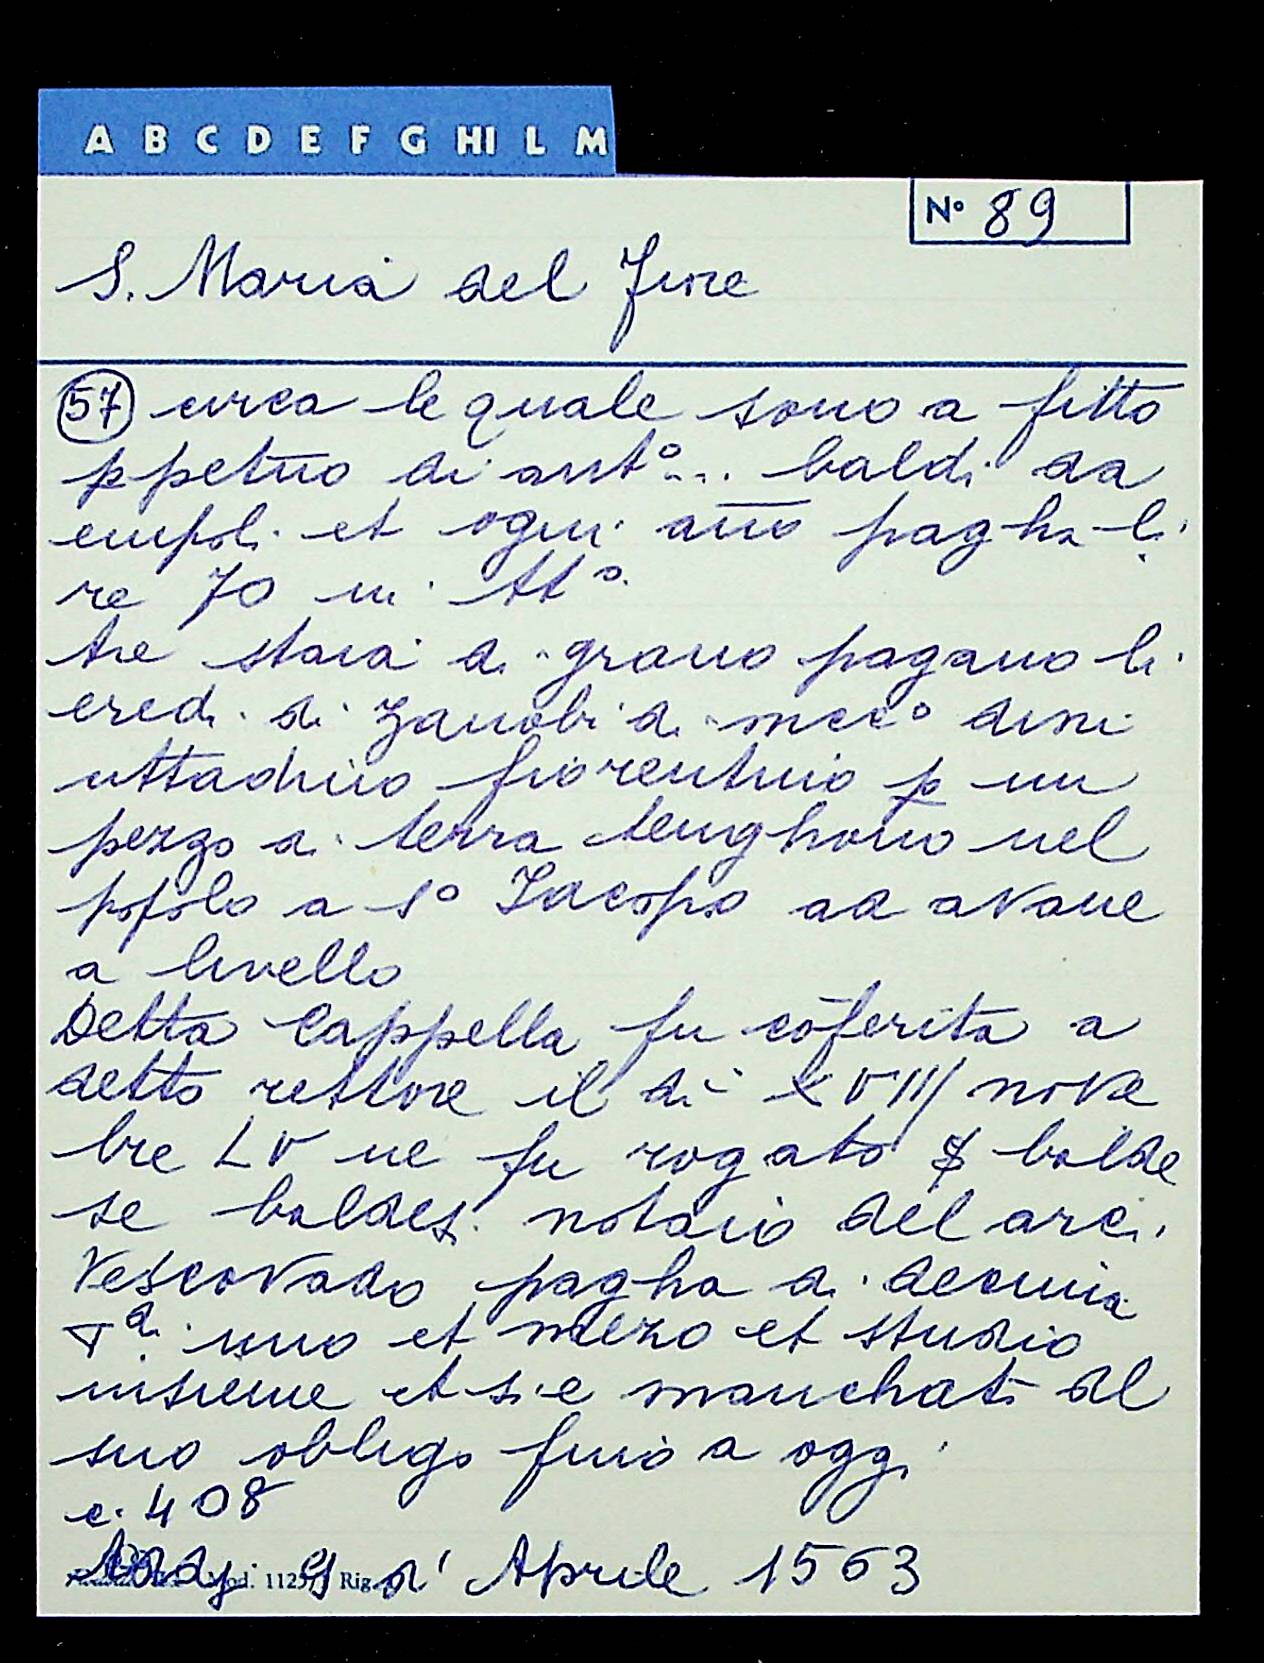 A B C D E F G HI L M
N° 89
S. Maria del Fiore
57 circa le quale sono a fitto
ppetuo di ant° ... baldi da
empoli et ogni año pagha li
re 70 in tt°
tre staia di grano pagano li
eredi di Zanobi di mcc° dini
cittadino fiorentino p un
pezzo di terra tenghono nel
popolo a s° Jacopo ad avane
a livello
Detta Cappella fu cōferita a
detto rettore il di XVIII nove
bre LV ne fu rogato $ balde
se baldesi notaio del arci
vescovado pagha di decima
di uno et mezo et studio
insieme et si e manchati al
suo obligo fino a oggi
c. 408
Addj 9 d' Aprile 1563